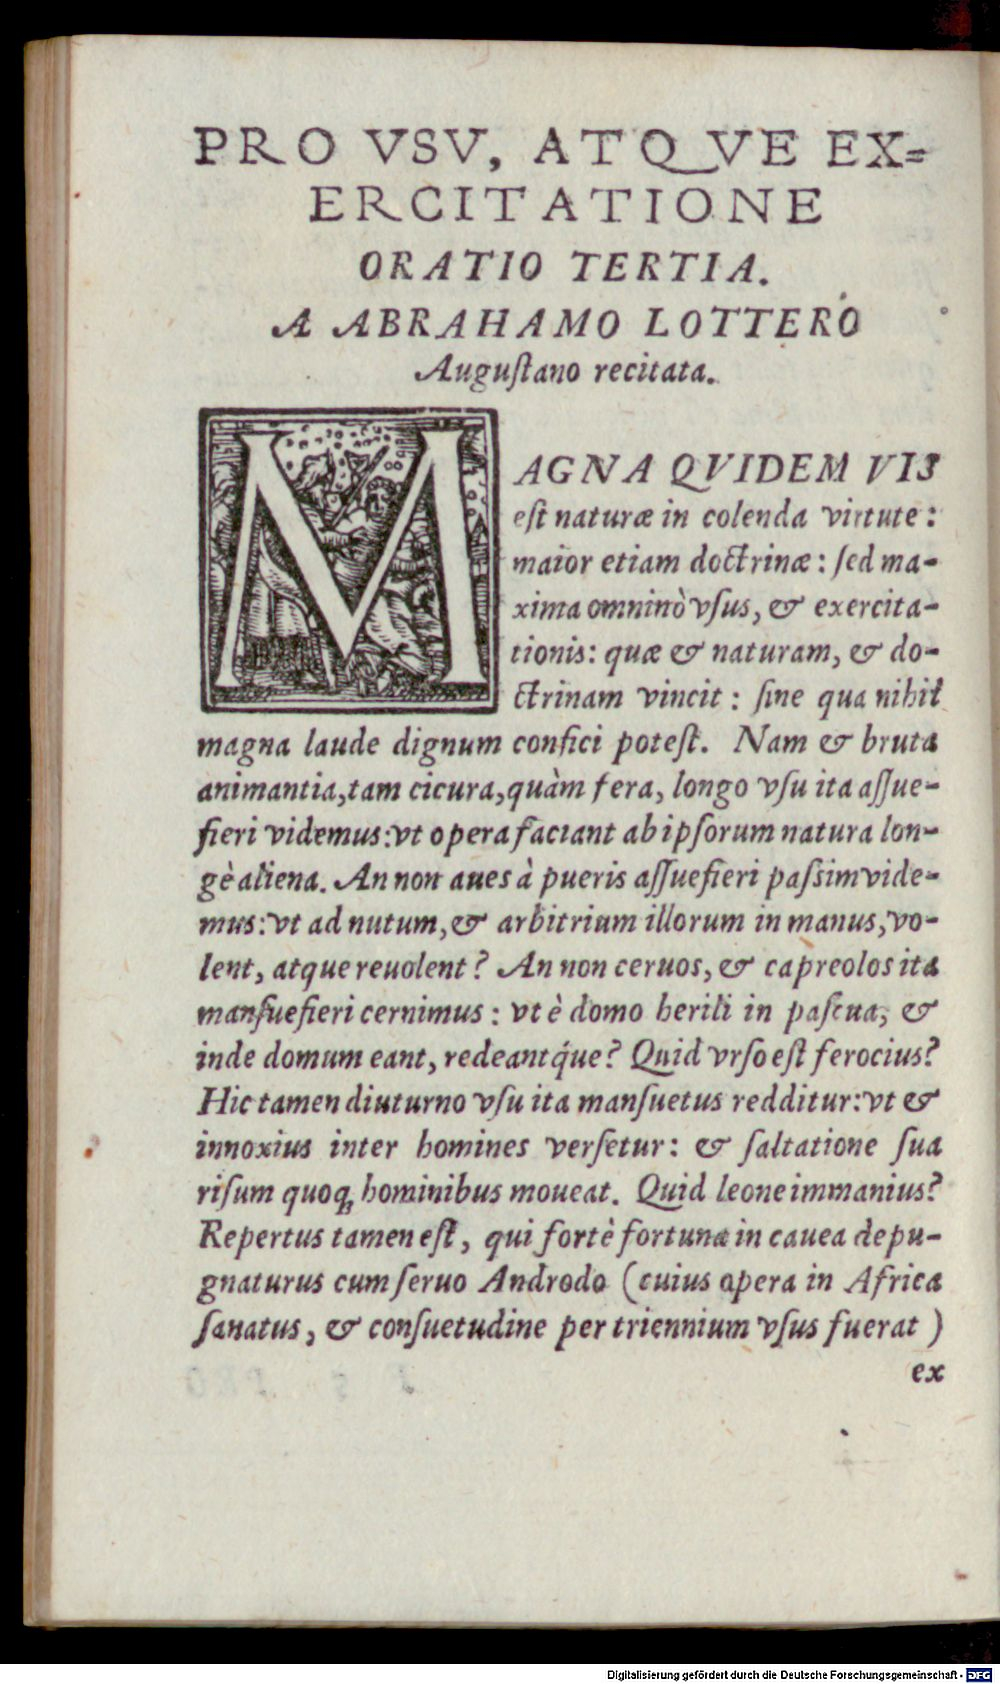 PRO VSV, ATQVE EX=
ERCITATIONE
ORATIO TERTIA.
A ABRAHAMO LOTTERO
Auguſtano recitata.
MAGNA QVIDEM VIS
eſt naturæ in colenda virtute:
maior etiam doctrinæ: ſed ma-
xima omninò vſus, & exercita-
tionis: quæ & naturam, & do-
ctrinam vincit: ſine qua nihil
magna laude dignum confici poteſt. Nam & bruta
animantia, tam cicura, quàm fera, longo vſu ita aſſue-
fieri videmus: vt opera faciant ab ipſorum natura lon-
gè aliena. An non aues à pueris aſſuefieri paſsim vide-
mus: vt ad nutum, & arbitrium illorum in manus, vo-
lent, atque reuolent? An non ceruos, & capreolos ita
manſuefieri cernimus: vt è domo herili in paſcua, &
inde domum eant, redeantq́ue? Quid vrſo eſt ferocius?
Hic tamen diuturno vſu ita manſuetus redditur: vt &
innoxius inter homines verſetur: & ſaltatione ſua
riſum quoqꝫ hominibus moueat. Quid leone immanius?
Repertus tamen eſt, qui fortè fortuna in cauea depu-
gnaturus cum ſeruo Androdo (cuius opera in Africa
ſanatus, & conſuetudine per triennium vſus fuerat)
ex
Digitalisierung gefördert durch die Deutsche Forschungsgemeinschaft - DFG